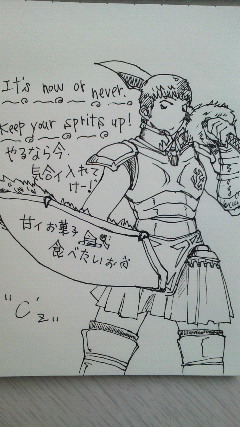 It's now or never.
Keep your sprits up!
やるなら今.
気合イ入れて
け-!
甘イお菓子
食べたいお
"C'z"